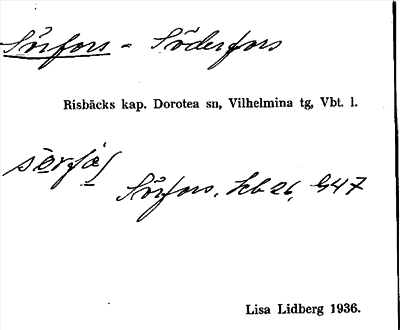 Sörfors = Söderfors
Risbäcks kap. Dorotea sn, Vilhelmina tg, Vbt. l.
Sörfors, hb 26, 947
Lisa Lidberg 1936.